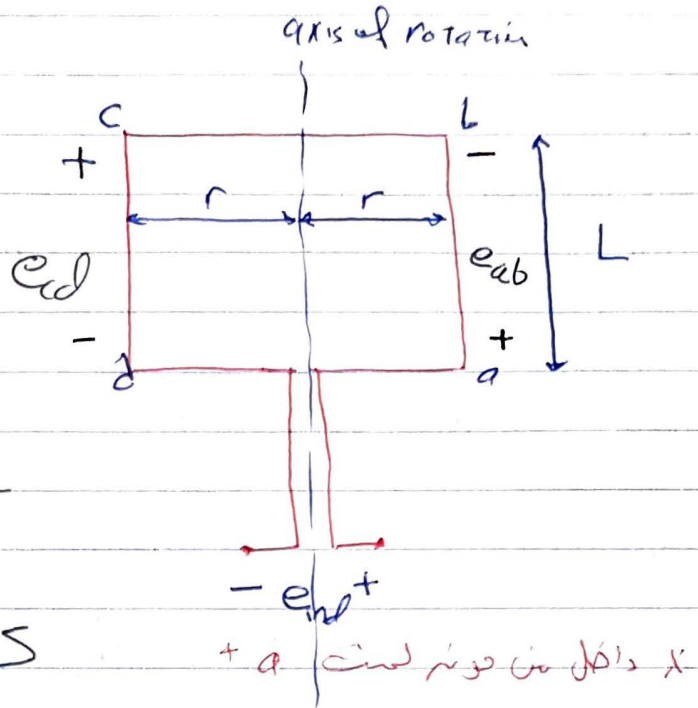 axis of rotation
c b
+ -
r r
e_cd e_ab L
- +
d a
- e_ind +
S
+ a داخل من